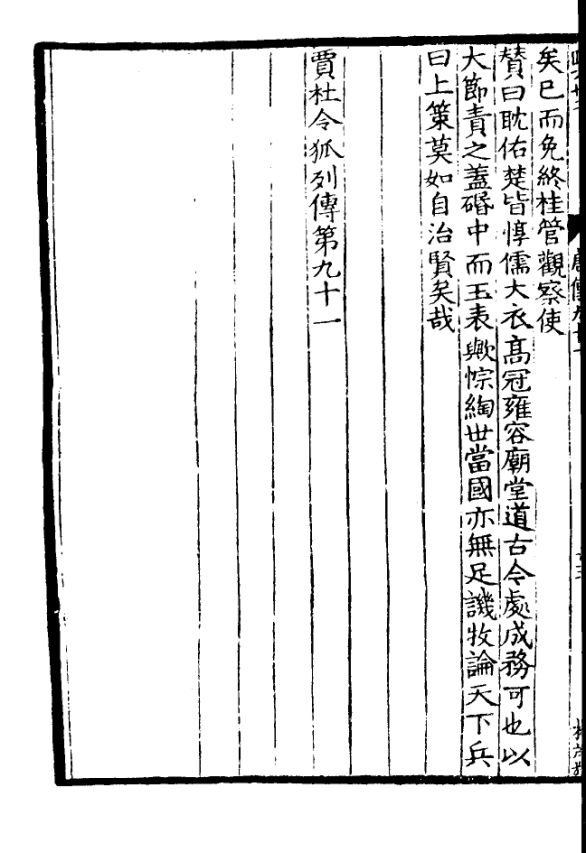 矣已而免終桂管觀察使
贊曰耽佑楚皆惇儒大衣高冠雍容廟堂道古今處成務可也以
大節責之蓋磻中而玉表歟悰綯世當國亦無足譏牧論天下兵
曰上策莫如自治賢矣哉
賈杜令狐列傳第九十一